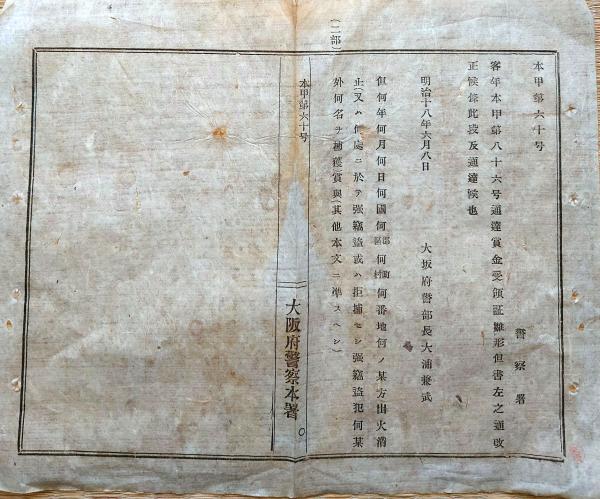 本甲第六十号
警察署
客年本甲第八十六号通達賞金受領証雛形但書左之通改
正候條此段及通達候也
明治十八年六月八日　大坂府警部長大浦兼武
但何年何月何日何國何郡區何町村何番地何ノ某方出火消
止(又ハ何處ニ於テ强竊盗或ハ拒捕セシ强竊盗犯何某
外何名ヲ捕獲)賞與(其他本文ニ凖スヘシ)
(二部)
本甲第六十号
大阪府警察本署